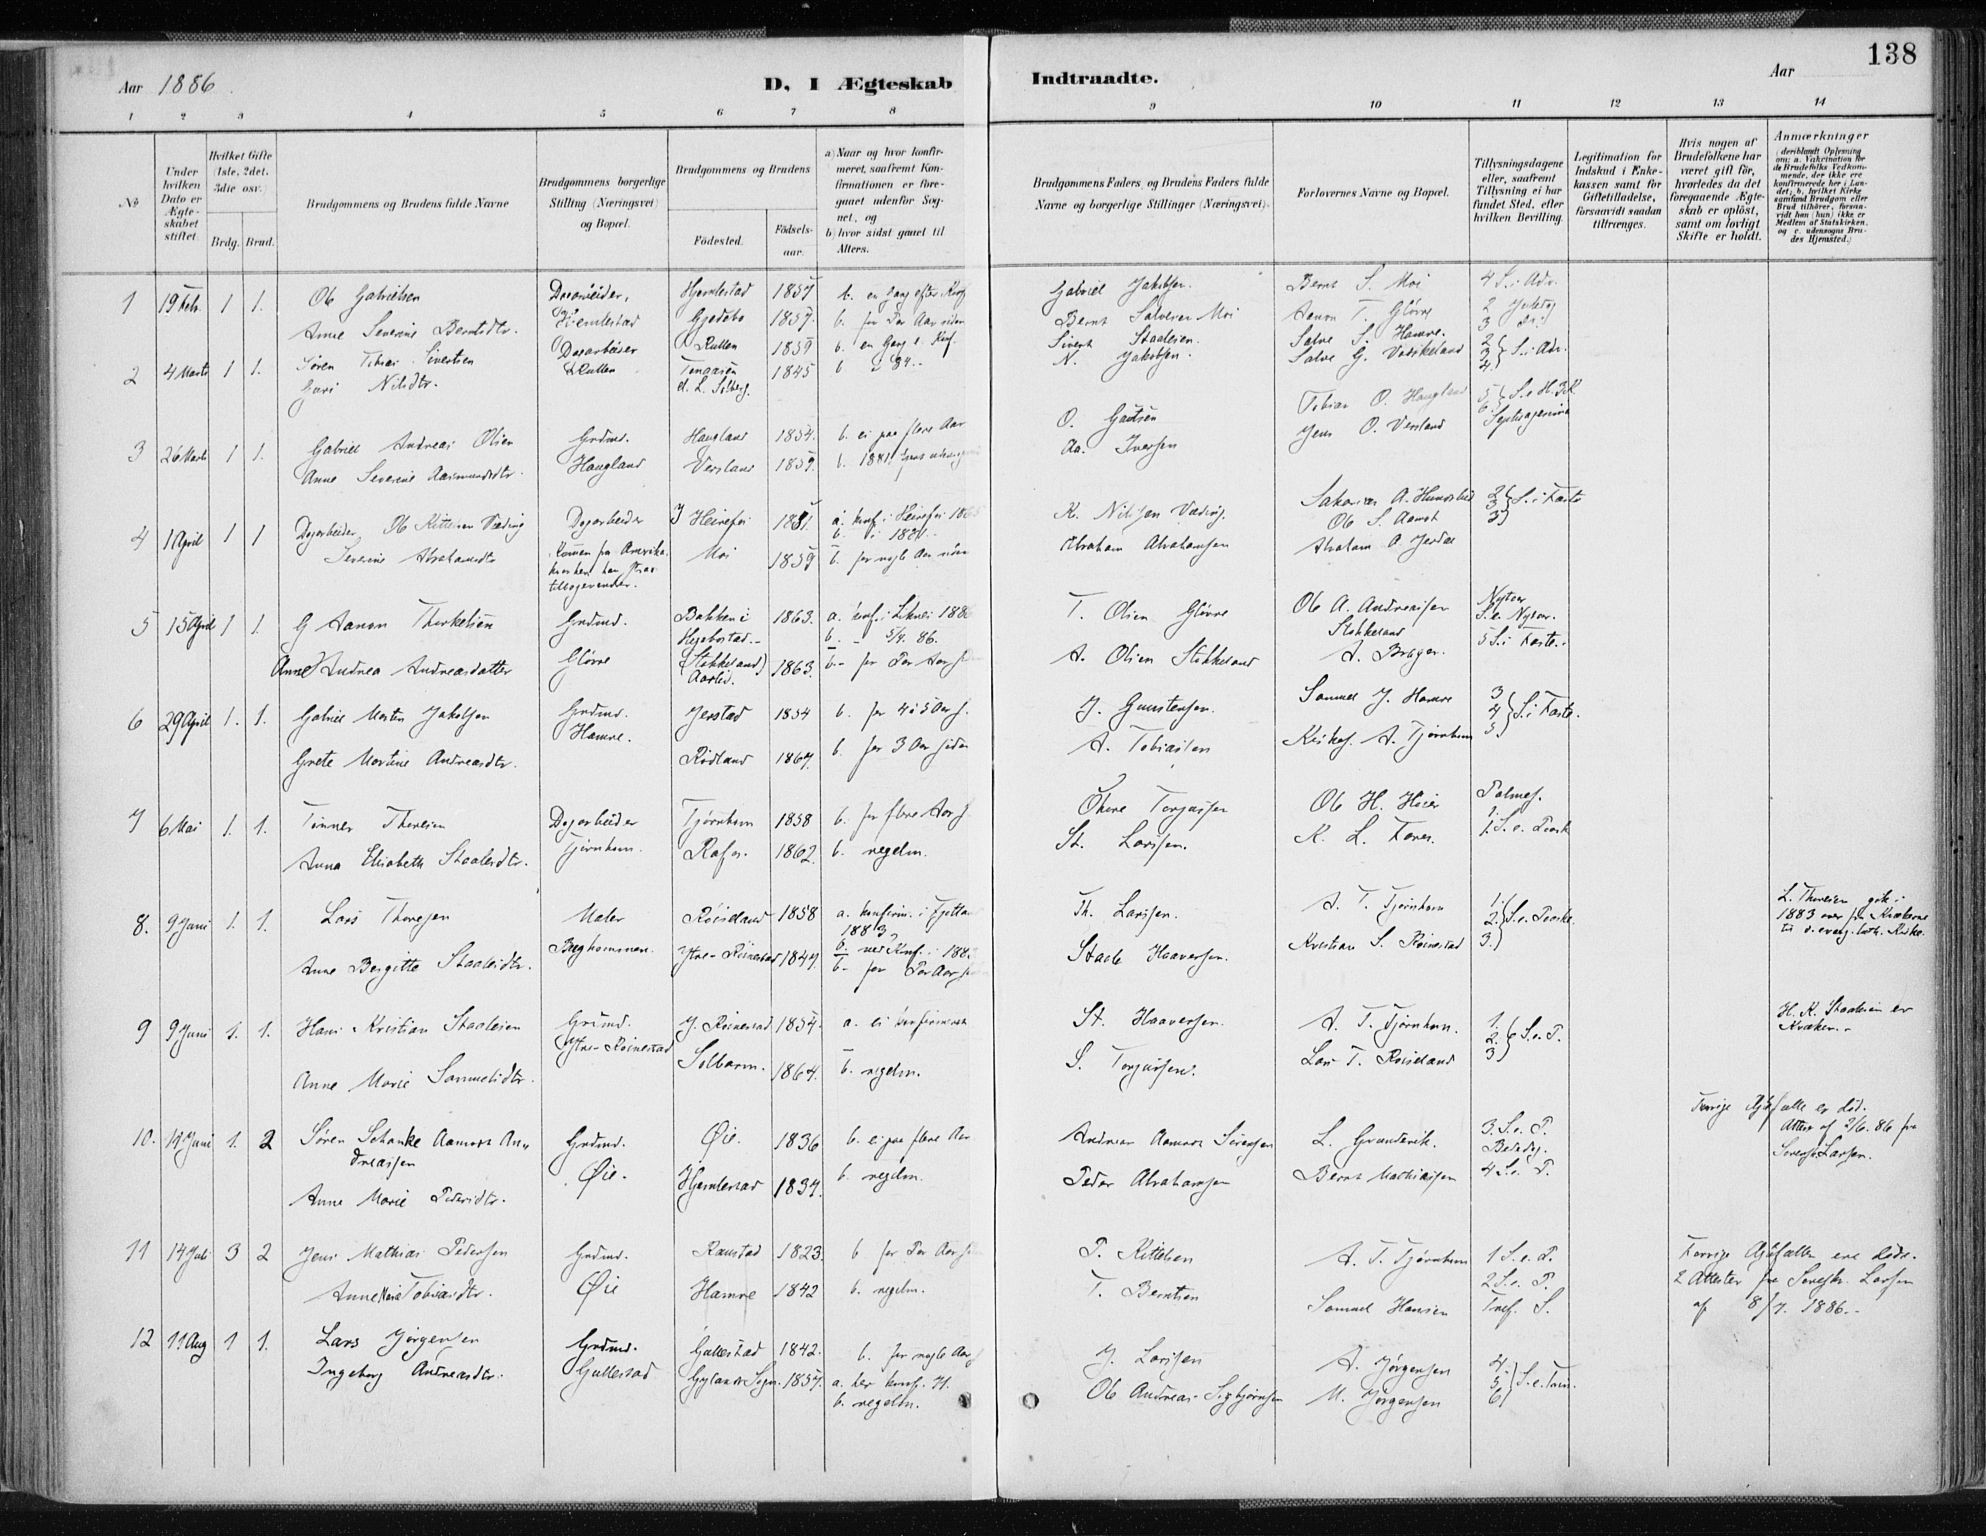 138
Aar 1886.
D. I Ægteskab Indtraadte.
Aar
1 2 3 4 5 6 7 8 9 10 11 12 13 14
No
Under hvilken Dato er Ægteskabet stiftet.
Hvilket Gifte (1ste, 2det, 3die osv.)
Brdg. Brud.
Brudgommens og Brudens fulde Navne
Brudgommens borgerlige Stilling (Næringsvei) og Bopæl.
Brudgommens og Brudens
Fødested.
Fødselsaar.
a) Naar og hvor konfirmeret, saafremt Konfirmationen er foregaaet udenfor Sognet, og
b) hvor sidst gaaet til Alters.
Brudgommens Faders og Brudens Faders fulde Navne og borgerlige Stillinger (Næringsvei).
Forlovernes Navne og Bopæl.
Tillysningsdagene eller, saafremt Tillysning ei har fundet Sted, efter hvilken Bevilling.
Legitimation for Indskud i Enkekassen samt for Giftetilladelse, forsaavidt saadan tiltrænges.
Hvis nogen af Brudefolkene har været gift før, hvorledes da det foregaaende Ægteskab er opløst, samt om lovligt Skifte er holdt.
Anmærkninger (deriblandt Oplysning om: a. Vakcination for de Brudefolks Vedkommende, der ikke ere konfirmerede her i Landet; b. hvilket Kirkesamfund Brudgom eller Brud tilhører, forsaavidt han (hun) ikke er Medlem af Statskirken, og c. udensogns Brudes Hjemsted.)
1 19 Febr. 1 1. Ole Gabrielsen Dagarbeider, Hjemlestad 1857 b. en Gang efter Konf Gabriel Jakobsen. Bernt S. Moi 4 S. i Adv.
Anne Severine Berntsdtr. Hjemlestad Gjedebo 1857. b. for Par Aar siden Bernt Salvesen Moi Aanen T. Gløvre 2 Juledag
2 4 Marts 1 1. Søren Tobias Sivertsen Dagarbeider Rullen 1859 b. en Gang e. Konf. Sivert Staalesen. Salve S. Hamre.
Guri Nilsdtr. Rullen 1845 N. Jakobsen. Salve G. S. i Adv.
3 26 Marts 1 1. Gabriel Andreas Olsen Grdmd. Haugland 1854. b. ei paa flere Aar O. Tobias O. Haugland
Anne Severine Aasmundsdtr. Haugland Versland 1859. b. 1881 Aa. Iversen Jens O. Versland Septuagesima
4 1 April 1 1 Dagarbeider Ole Kittelsen Væding Dagarbeider Heirefos a. konf. i Heirefos K. Nilssen Væding. Sakarias A. S. i Faste
Severine Abrahamsdtr Kommen fra Amerika Moi 1859 b. for nogle Aar siden Abraham Abrahamsen Ole S. Aamot
Abraham A. Jerdal
5 15 April 1 1. G Aanen Thorkelsen Grdmd. Bakken i Hegebostad 1863. a. konf. i T. Olsen Gløvre Ole A. Andreassen Stokkeland Nytaar
b. 5/4. 86. S. e. Nytaar.
Anne Andrea Andreasdatter Gløvre (Stokkeland) 1863. b. for Par Aar siden A. Olsen Stokkeland A. Brager. 5 S. i Faste.
6 29 April 1. 1. Gabriel Morten Jakobsen Grdmd. Hamre. Jerstad 1854 b. for 4 à 5 Aar s. J. Gunstensen. Samuel J. Hamre 3 4 5 S. i Faste.
Grete Martine Andreasdtr. Rødland 1867. b. for 3 Aar siden A. Tobiassen Kirkes. A. Tjørnhom
7 6 Mai 1. 1. Tønnes Theresen Dagarbeider Tjørnhom. Tjørnhom 1858 b. for flere Aar s. There Torgussen Ole H. Heier Palmes.
Anna Elisabeth Staalesdtr. Rafos. 1862. b. regelm. St. Larssen. K. L. 1. S. e. Paaske
8. 9 Juni 1. 1. Lars Theresen Maler Røiseland 1858 a. konfirm. i Fjotland 1883 Th. Larssen. A. T. Tjørnhom 1. 2. 3. S. e. Paaske. L. Theresen gik i 1883 over fra Kvækerne til d. evang. luth. Kirke.
Anne Bergitte Staalesdtr. Ytre-Røinestad 1847. b. for Par Aar siden Staale Haaversen. Kristian S. Røinestad
9 9 Juni 1. 1. Hans Kristian Staalesen Grdmd. Ytre-Røinestad Y. Røinestad 1854. a. ei konfirmeret St. Haaversen. A. T. Tjørnhom. 1. 2. 3 S. e. P. H. K. Staalesen er Kvæker.
Anne Marie Samuelsdtr. Solbarm. 1864. b. regelm. S. Torgussen. Lars T. Røiseland
10. Juni 1. 2 Søren Schanke Aamodt Andreassen Grdmd. Øie. Øie. 1836 b. ei paa flere Aar Andreas Aamodt Sørensen L. Grandevik. 3. S. e. P. Forrige Ægtefælle er død. Attest af 2/6. 86 fra Sorenskr. Larsen.
Bededag.
Anne Marie Pedersdtr. Hjemlestad 1834. b. regelm. Peder Abrahamsen Bernt Mathiassen 4 S. e. P.
11 14 Juli 3 2 Jens Mathias Pedersen Grdmd. Øie Raustad 1823. b. for Par Aar siden P. Kittelsen A. T. Tjørnhom 1 S. e. P. Forrige Ægtefæller ere døde.
Anne Marie Tobiasdtr. Hamre 1842 b. regelm. T. Berntsen Samuel Hansen 2 S. e. P. 2 Attester fra Sorenskr. Larsen af 8/7. 1886.
Tref. S.
12 11 Aug 1 1. Lars Jørgensen Grdmd. Gullestad Gullestad 1842. b. for nogle Aar s. J. Larssen A. Jørgensen 4. 5 6 S. e. Tref.
Ingeborg Andreasdtr. Gylands Sogn. 1857. a. her konf. b. regelm. Ole Andreas Sigbjørnsen M. Jørgensen